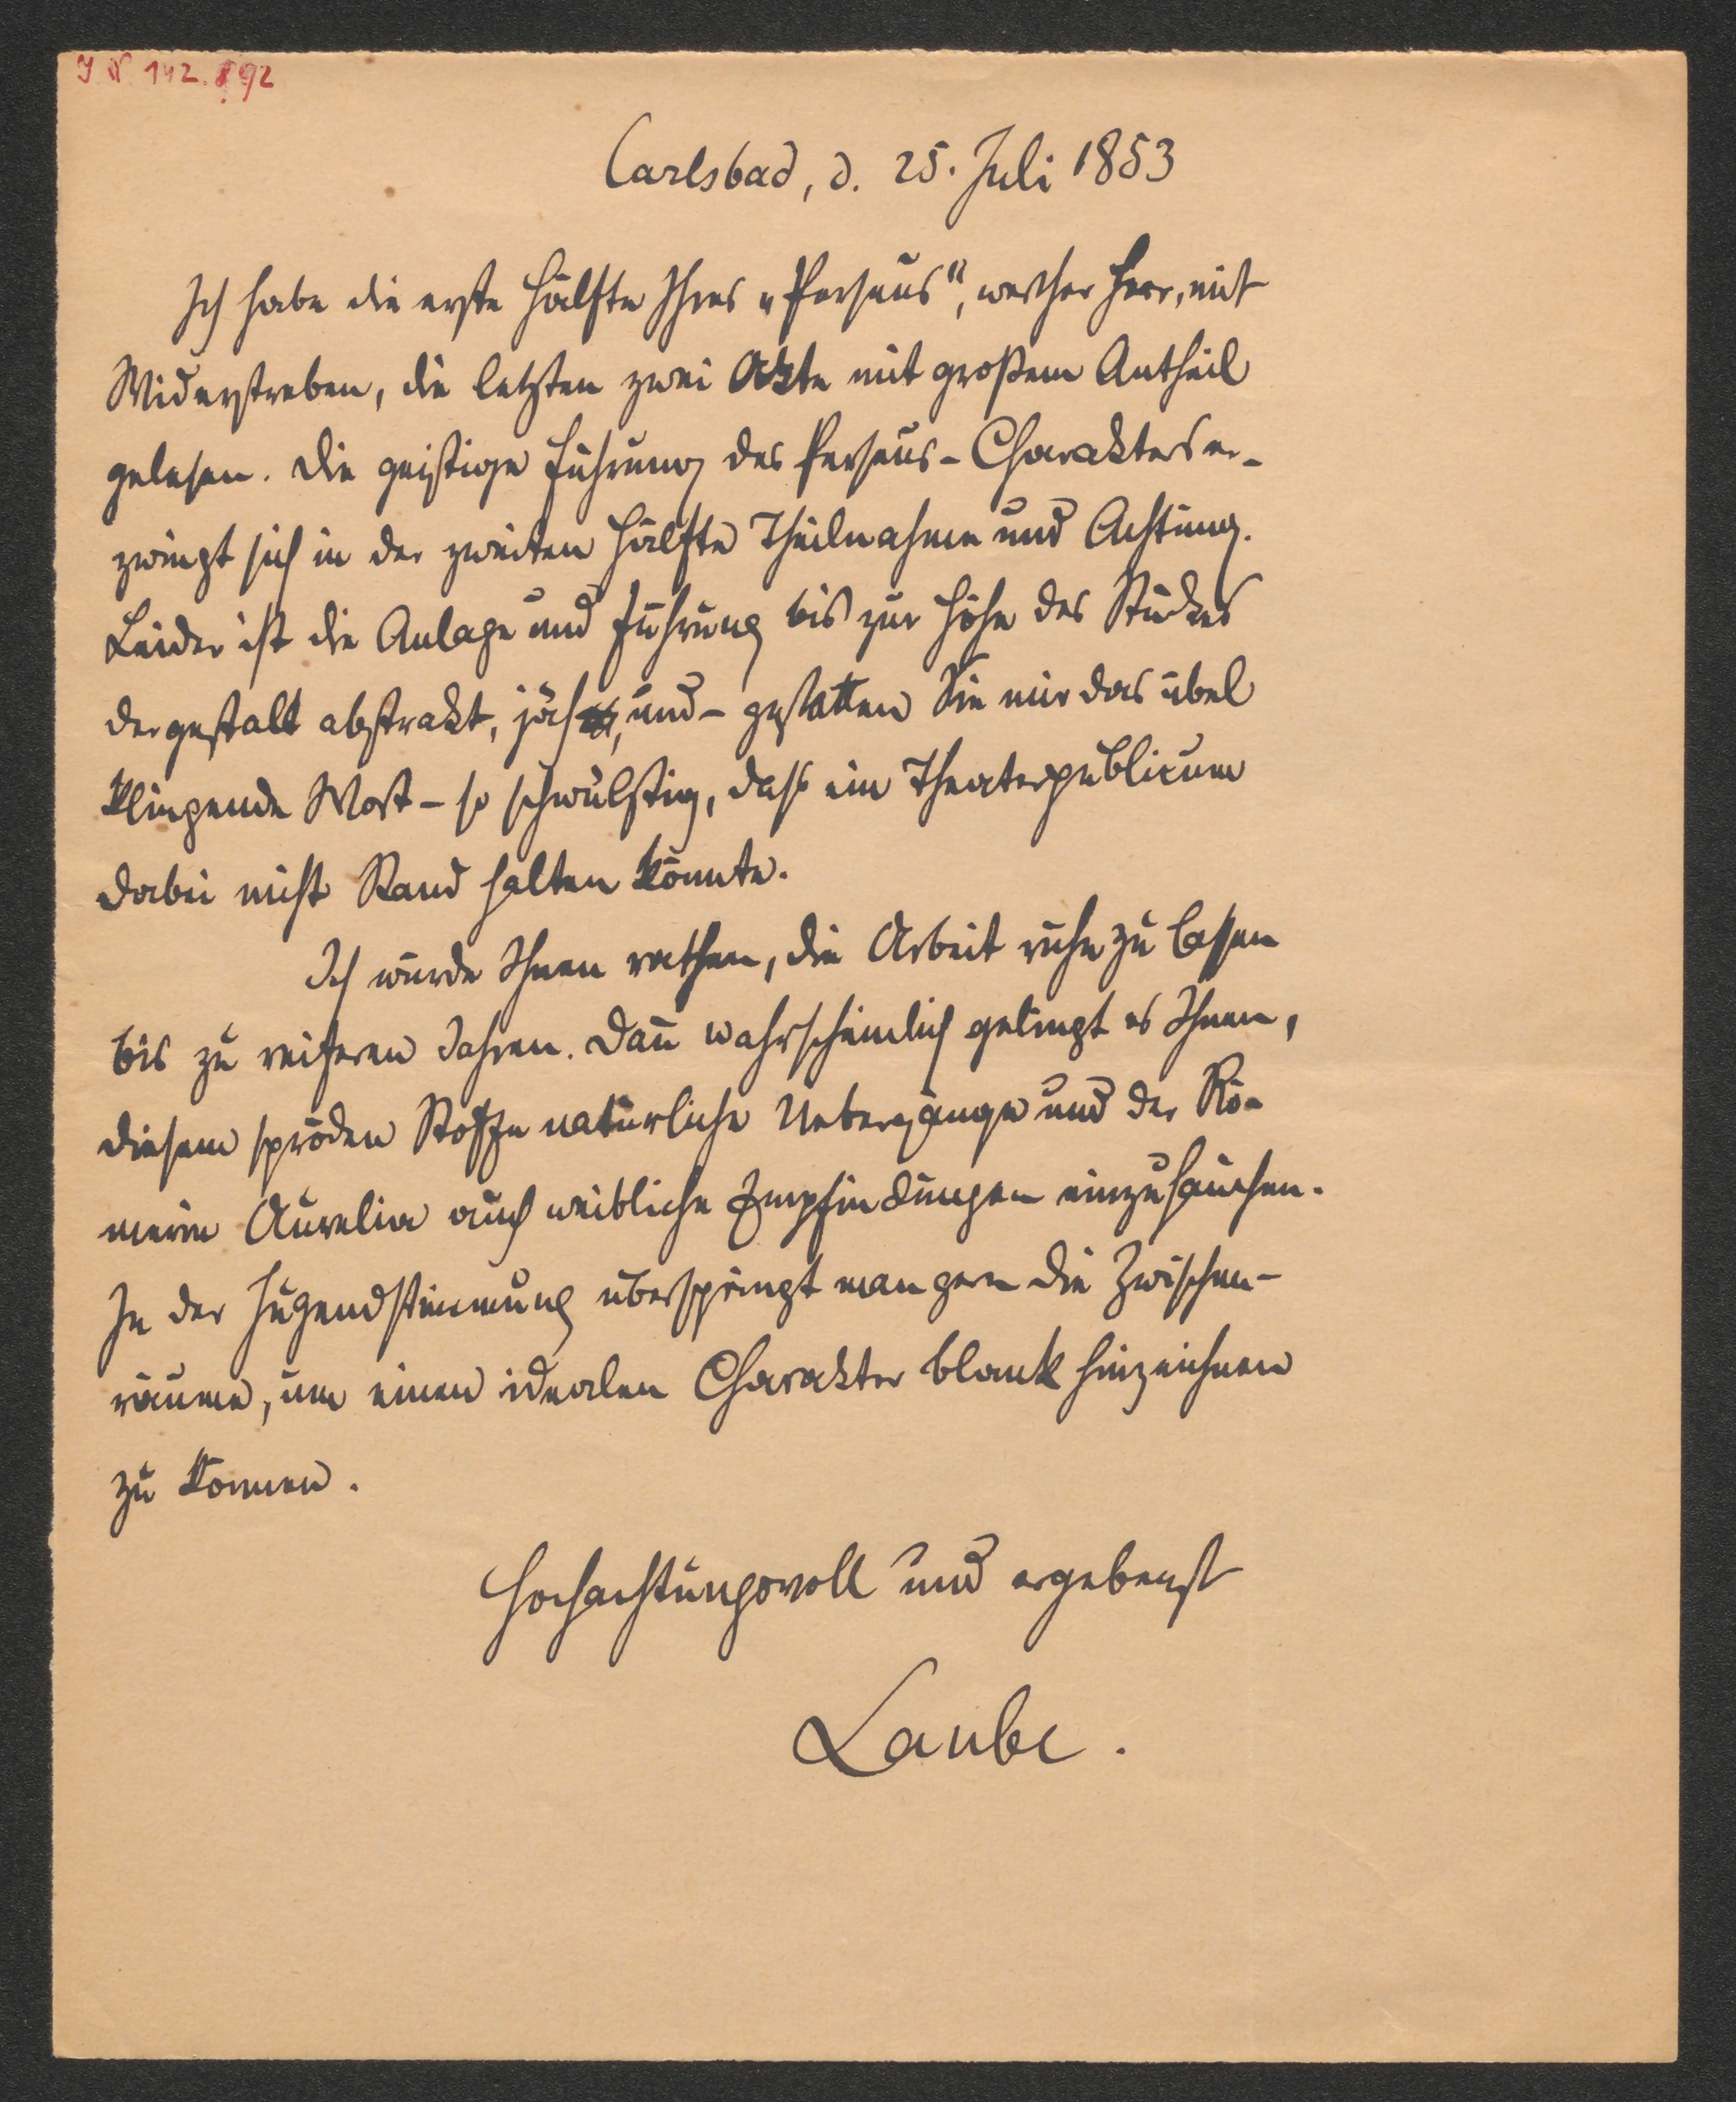 J. N. 142.892
Carlsbad, d. 25. Juli 1853
Ich habe die erste Hälfte Ihres „Perseus“, werther Herr, mit
Widerstreben, die letzten zwei Akte mit großem Antheil
gelesen. Die geistige Führung des Perseus-Charakters er-
zwingt sich in der zweiten Hälfte Theilnahme und Achtung.
Leider ist die Anlage und Führung bis zur Höhe des Stückes
dergestalt abstrakt, jäh, und – gestatten Sie mir das übel
klingende Wort – so schwülstig, dass ein Theaterpublicum
dabei nicht Stand halten könnte.
Ich würde Ihnen rathen, die Arbeit ruhn zu lassen
bis zu reiferen Jahren. Dañ wahrscheinlich gelingt es Ihnen,
diesem spröden Stoffe natürliche Uebergänge und der Rö-
merin Aurelia auch weibliche Empfindungen einzuhauchen.
In der Jugendstimmung überspringt man gern die Zwischen-
räume, um einen idealen Charakter blank hinzeichnen
zu können.
Hochachtungsvoll und ergebenst
Laube.